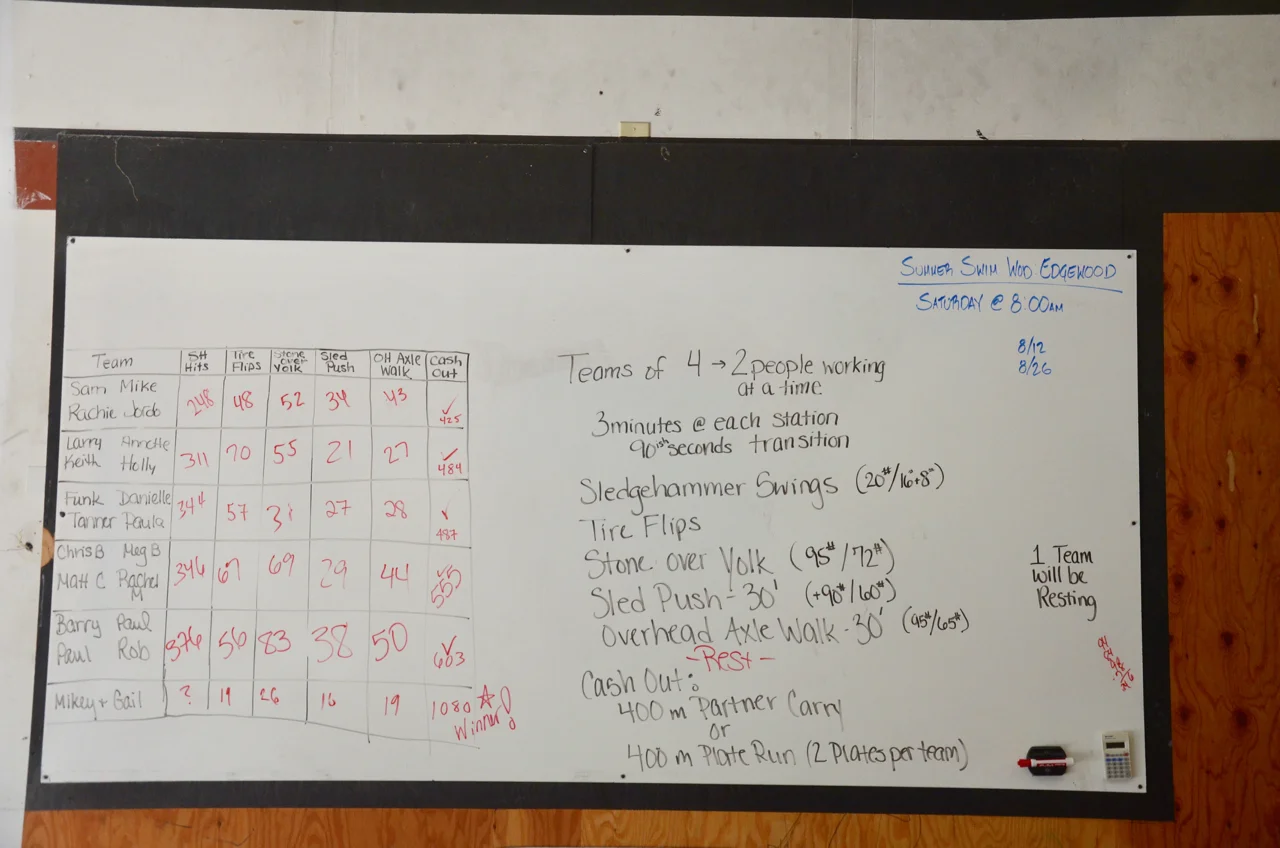 SUMMER SWIM WOD EDGEWOOD
SATURDAY @ 8:00AM
8/12
8/26
Team SH Hits Tire Flips Stone over Volk Sled Push OH Axle Walk Cash Out
Sam Mike
Rachie Jorob
248 48 52 34 43 ✓ 425
Larry Annette
Keith Holly
311 70 55 21 27 ✓ 484
Funk Danielle
Tanner Paula
344 57 27 28 ✓ 487
Chris B Meg B
Matt C Rachel M
346 67 69 29 44 ✓ 555
Barry Paul
Paul Rob
376 56 83 38 50 ✓ 603
Mikey + Gail ? 19 26 16 19 1080
Winner!
Teams of 4 → 2 people working
at a time.
3 minutes @ each station
90 seconds transition
Sledgehammer Swings (20#/16+8#)
Tire Flips
Stone over Volk (95#/72#)
Sled Push - 30' (+90#/60#)
overhead Axle Walk - 30' (95#/65#)
- Rest -
Cash Out:
400 m Partner Carry
or
400 m Plate Run (2 Plates per team)
1 Team
will be
Resting